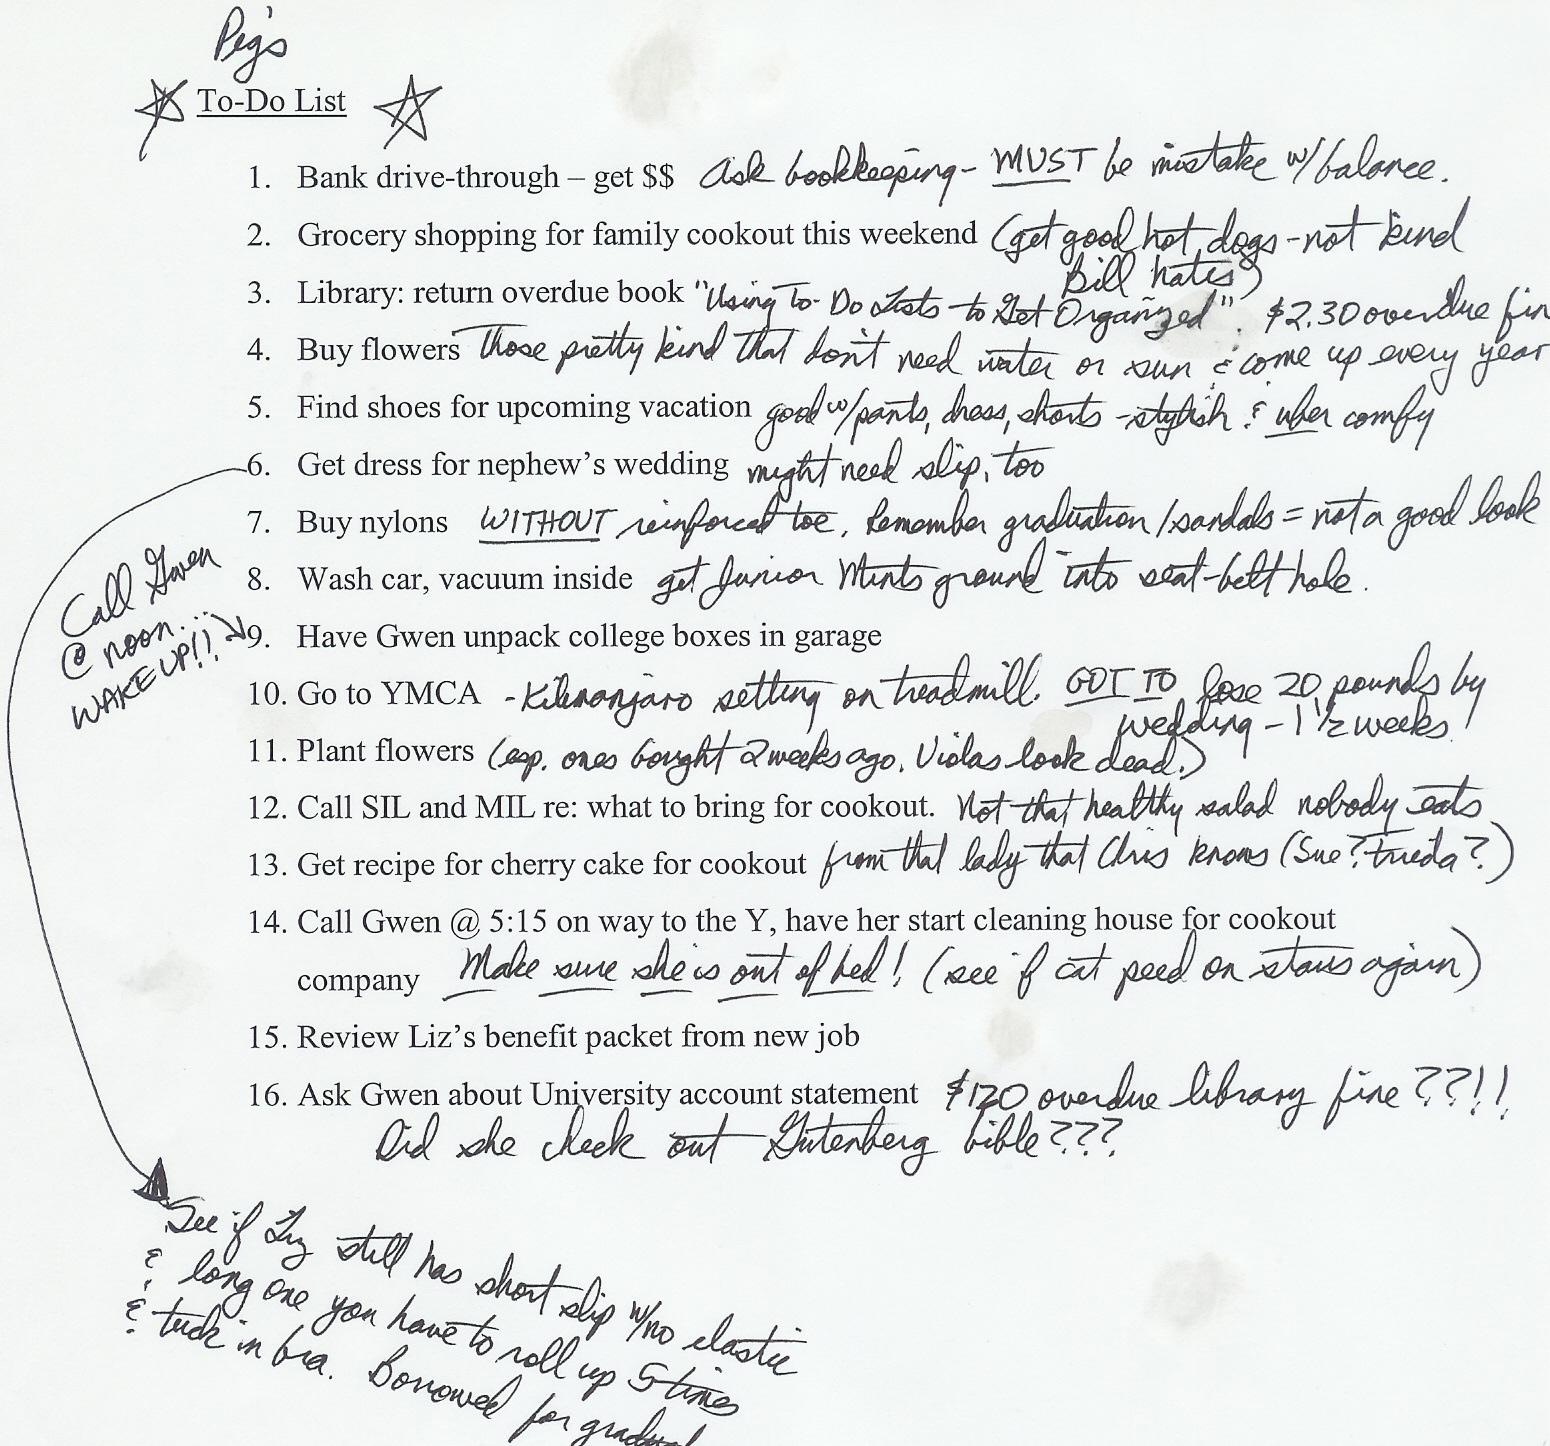 Peg's
To-Do List
1. Bank drive-through – get $$ Ask bookkeeping- MUST be mistake w/balance.
2. Grocery shopping for family cookout this weekend (get good hot dogs - not kind
Bill hates)
3. Library: return overdue book "Using To-Do Lists to Get Organized". $2.30 overdue fin
4. Buy flowers Those pretty kind that don't need water or sun & come up every year
5. Find shoes for upcoming vacation good w/pants, dress, shorts - stylish & uber comfy
6. Get dress for nephew's wedding might need slip, too
7. Buy nylons WITHOUT reinforced toe. Remember graduation/sandals = not a good look
8. Wash car, vacuum inside get Junior Mints ground into seat-belt hole.
Call Gwen
@ noon...
WAKE UP!!
9. Have Gwen unpack college boxes in garage
10. Go to YMCA - Kilimanjaro setting on treadmill. GOT TO lose 20 pounds by
wedding - 1 1/2 weeks.
11. Plant flowers (esp. ones bought 2 weeks ago. Violas look dead.)
12. Call SIL and MIL re: what to bring for cookout. Not that healthy salad nobody eats
13. Get recipe for cherry cake for cookout from that lady that Chris knows (Sue? Frieda?)
14. Call Gwen @ 5:15 on way to the Y, have her start cleaning house for cookout
company Make sure she is out of bed! (see if cat peed on stairs again)
15. Review Liz's benefit packet from new job
16. Ask Gwen about University account statement $120 overdue library fine??!!
Did she check out Gutenberg bible???
See if Liz still has short slip w/no elastic
& long one you have to roll up 5 times
& tuck in bra. Borrowed for graduat